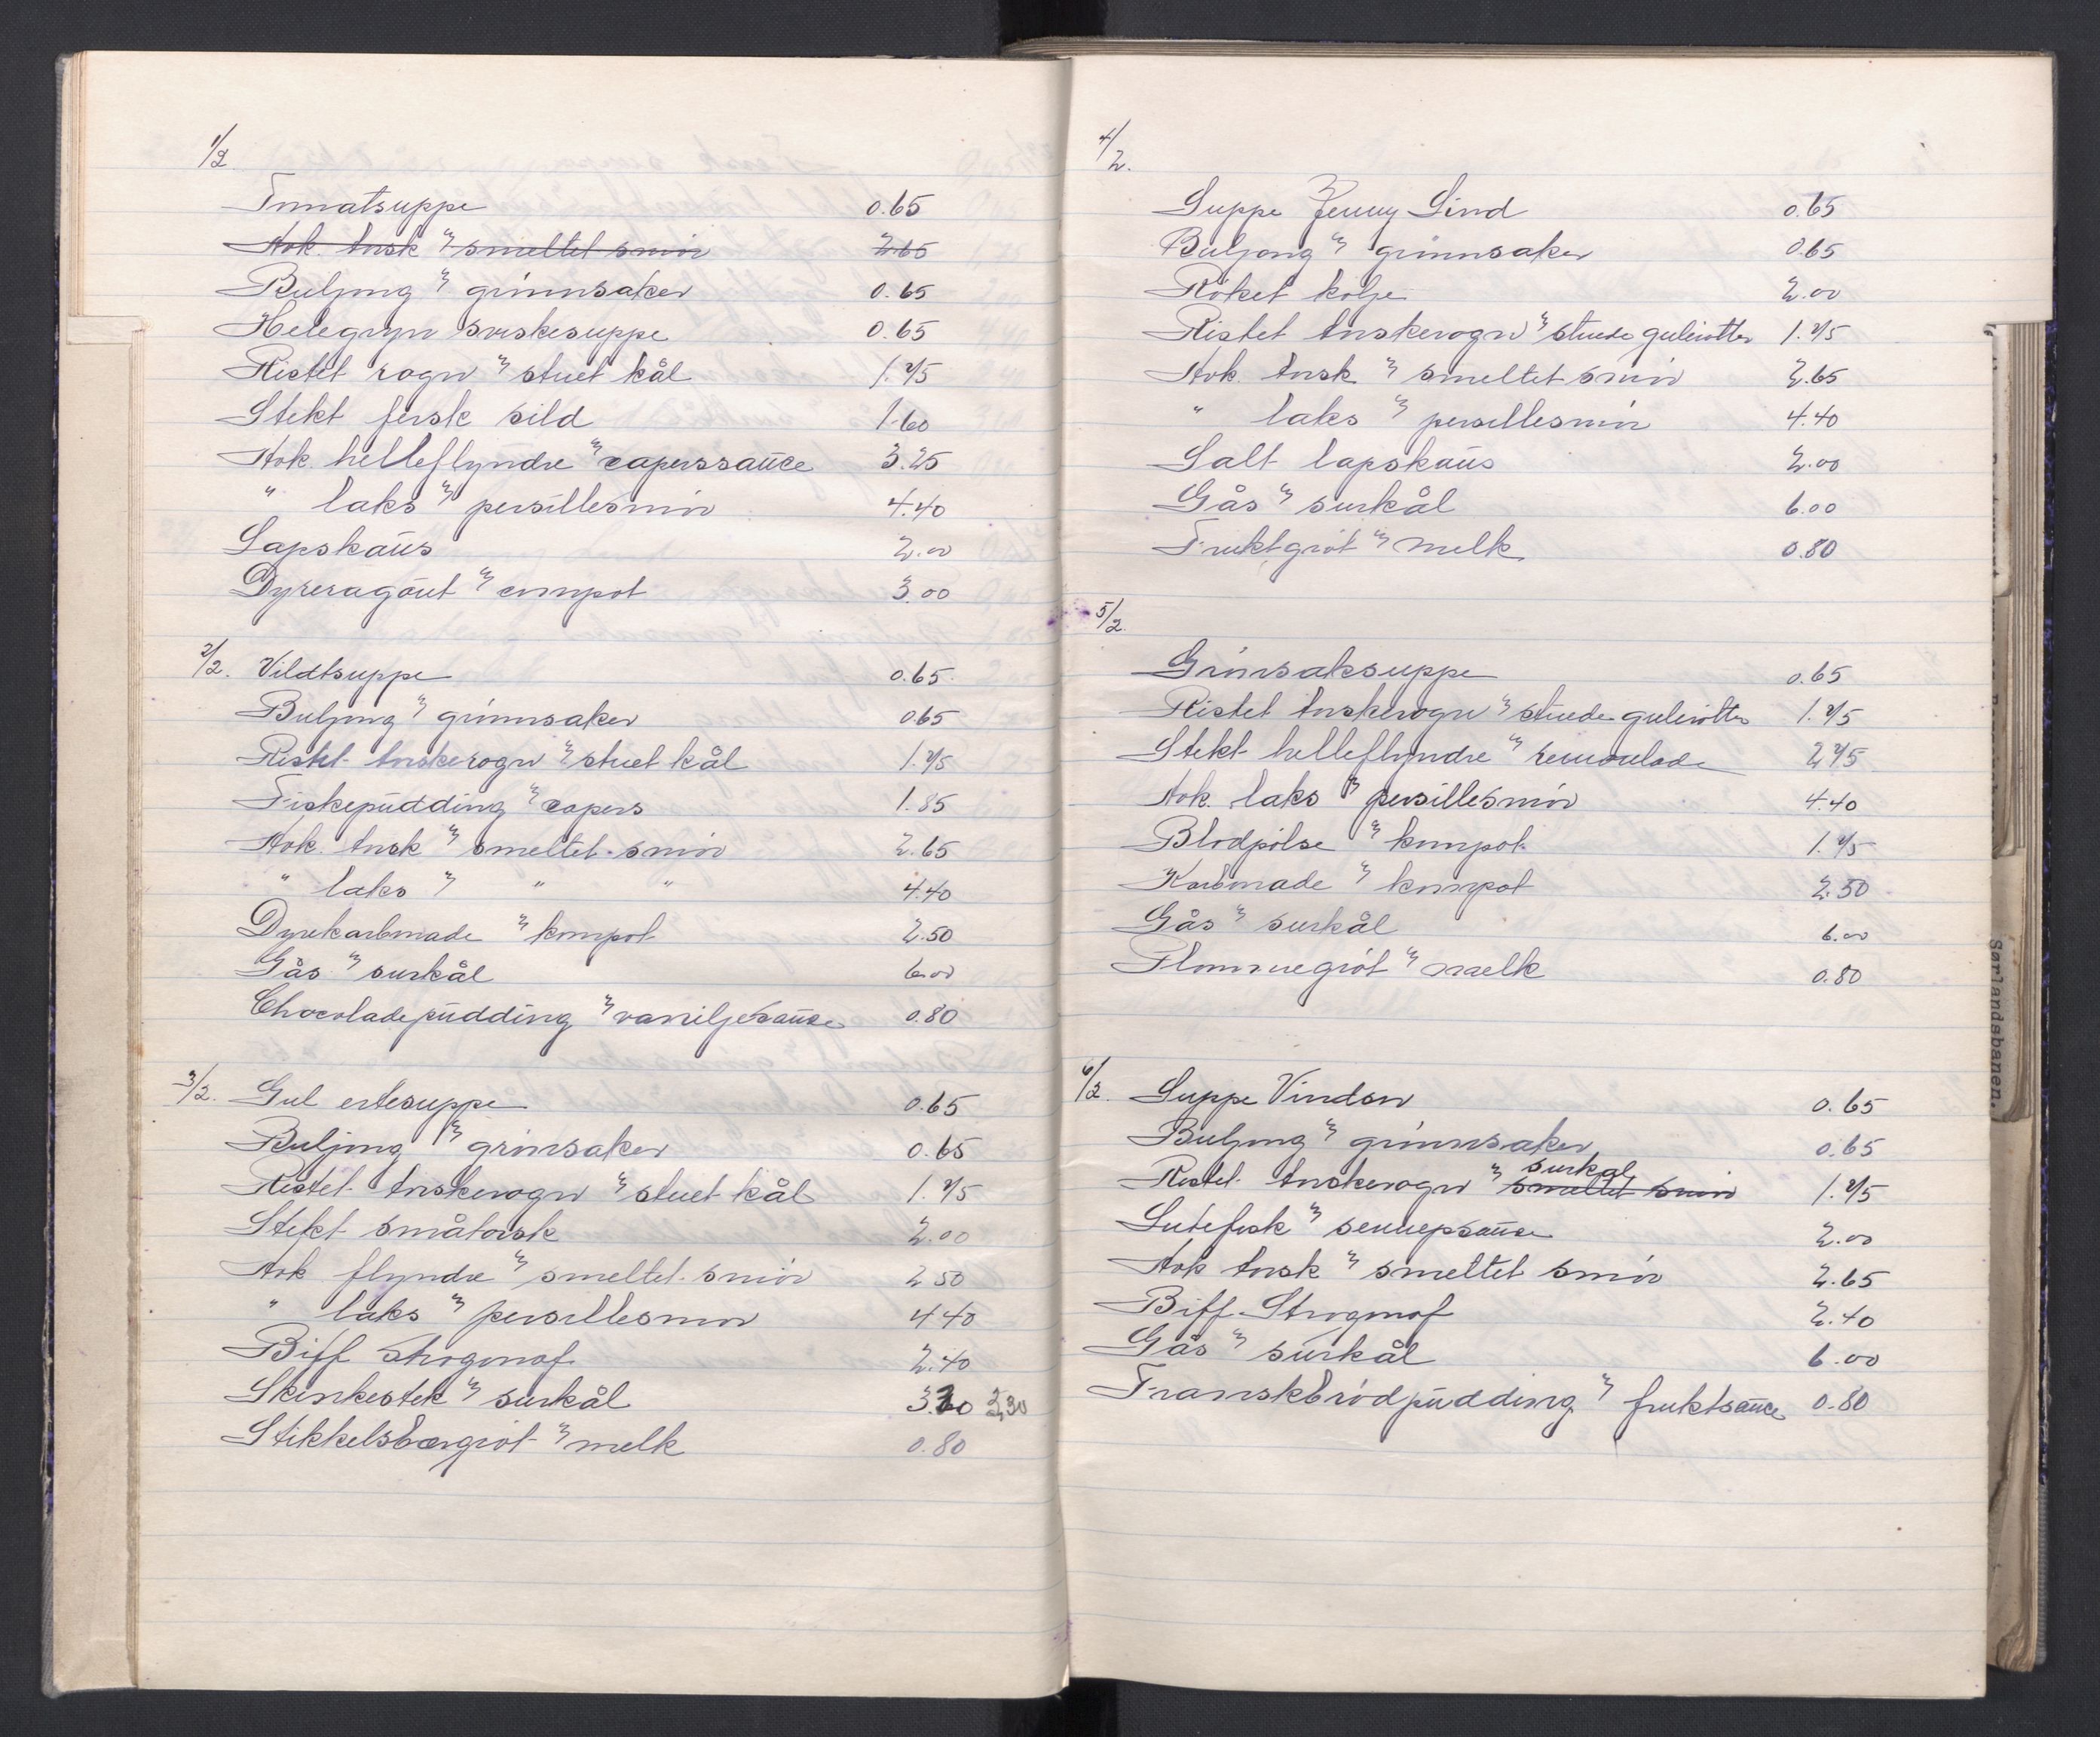 1/2
Tomatsuppe 0.65
Kok. torsk m smeltet smör 2.65
Buljong m grönnsaker 0.65
Helegryn sviskesuppe 0.65
Ristet rogn m stuet kål 1.75
Stekt fersk sild 1.60
Kok. helleflyndre m caperssauce 3.25
" laks m persillesmör 4.40
Lapskaus 2.00
Dyreragout m compot 3.00
2/2. Vildtsuppe 0.65
Buljong m grönnsaker 0.65
Ristet torskerogn m stuet kål 1.75
Fiskepudding m capers 1.85
Kok. torsk m smeltet smör 2.65
" laks m " " 4.40
Dyrekarbonade m kompot 2.50
Gås m surkål 6.00
Chocoladepudding m vaniljesause 0.80
3/2. Gul ertesuppe 0.65
Buljong m grönsaker 0.65
Ristet torskerogn m stuet kål 1.75
Stekt småtorsk 2.00
Kok flyndre m smeltet smör 2.50
" laks m persillesmör 4.40
Biff Strogonof 2.40
Skinkestek m surkål 3.20 3,30
Stikkelsbærgröt m melk 0.80
4/2.
Suppe Jenny Lind 0.65
Buljong m grönnsaker 0.65
Röket kolje 2.00
Ristet torskerogn m stuede gulerötter 1.75
Kok. torsk m smeltet smör 2.65
" laks m persillesmör 4.40
Salt lapskaus 2.00
Gås m surkål 6.00
Fruktgröt m melk 0.80
5/2.
Grönsaksuppe 0.65
Ristet torskerogn m stuede gulerötter 1.75
Stekt helleflyndre m remoulade 2.75
Kok. laks m persillesmör 4.40
Blodpölse m kompot 1.75
Karbonade m kompot 2.50
Gås m surkål 6.00
Plommegröt m melk 0.80
6/2. Suppe Vindsor 0.65
Buljong m grönnsaker 0.65
Ristet torskerogn m smeltet smör surkål 1.75
Lutefisk m sennepsause 2.00
Kok torsk m smeltet smör 2.65
Biff Strogonof 2.40
Gås m surkål 6.00
Franskbrödpudding m fruktsauce 0.80
Sørlandsbanen.